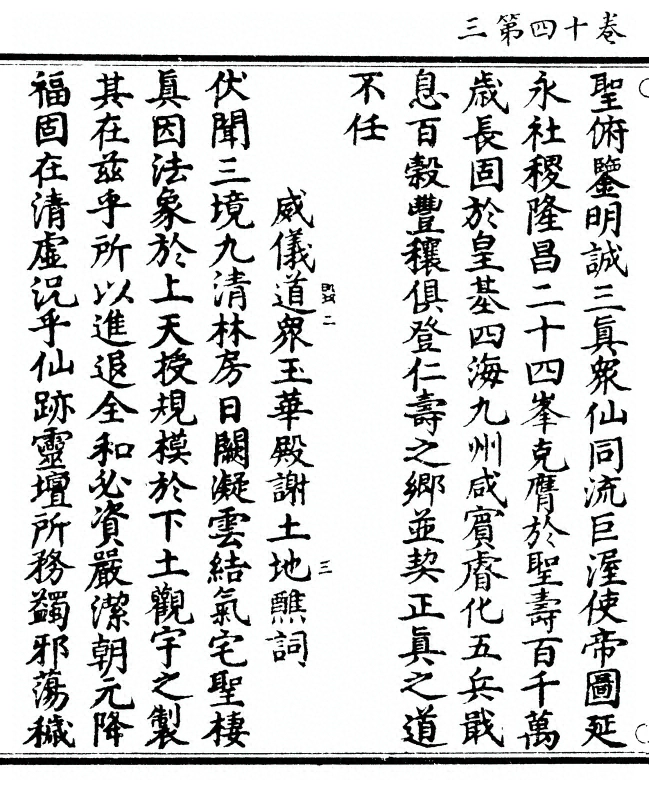 卷十四第三
聖俯鑒明誠三眞眾仙同流巨渥使帝圖延
永社稷隆昌二十四峯克膺於聖壽百千萬
歲長固於皇基四海九州咸賓睿化五兵戢
息百穀豐穰俱登仁壽之鄉並契正眞之道
不任
二 三
威儀道眾玉華殿謝土地醮詞
伏聞三境九清林房日闕凝雲結氣宅聖棲
眞因法象於上天授規模於下土觀宇之製
其在茲乎所以進退全和必資嚴潔朝元降
福固在清虛況乎仙跡靈壇所務蠲邪蕩穢